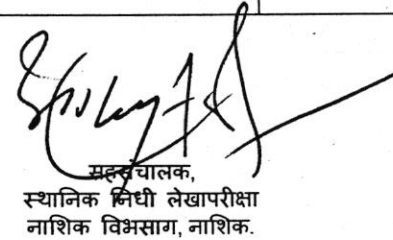 सहसंचालक,
स्थानिक निधी लेखापरीक्षा
नाशिक विभसाग, नाशिक.